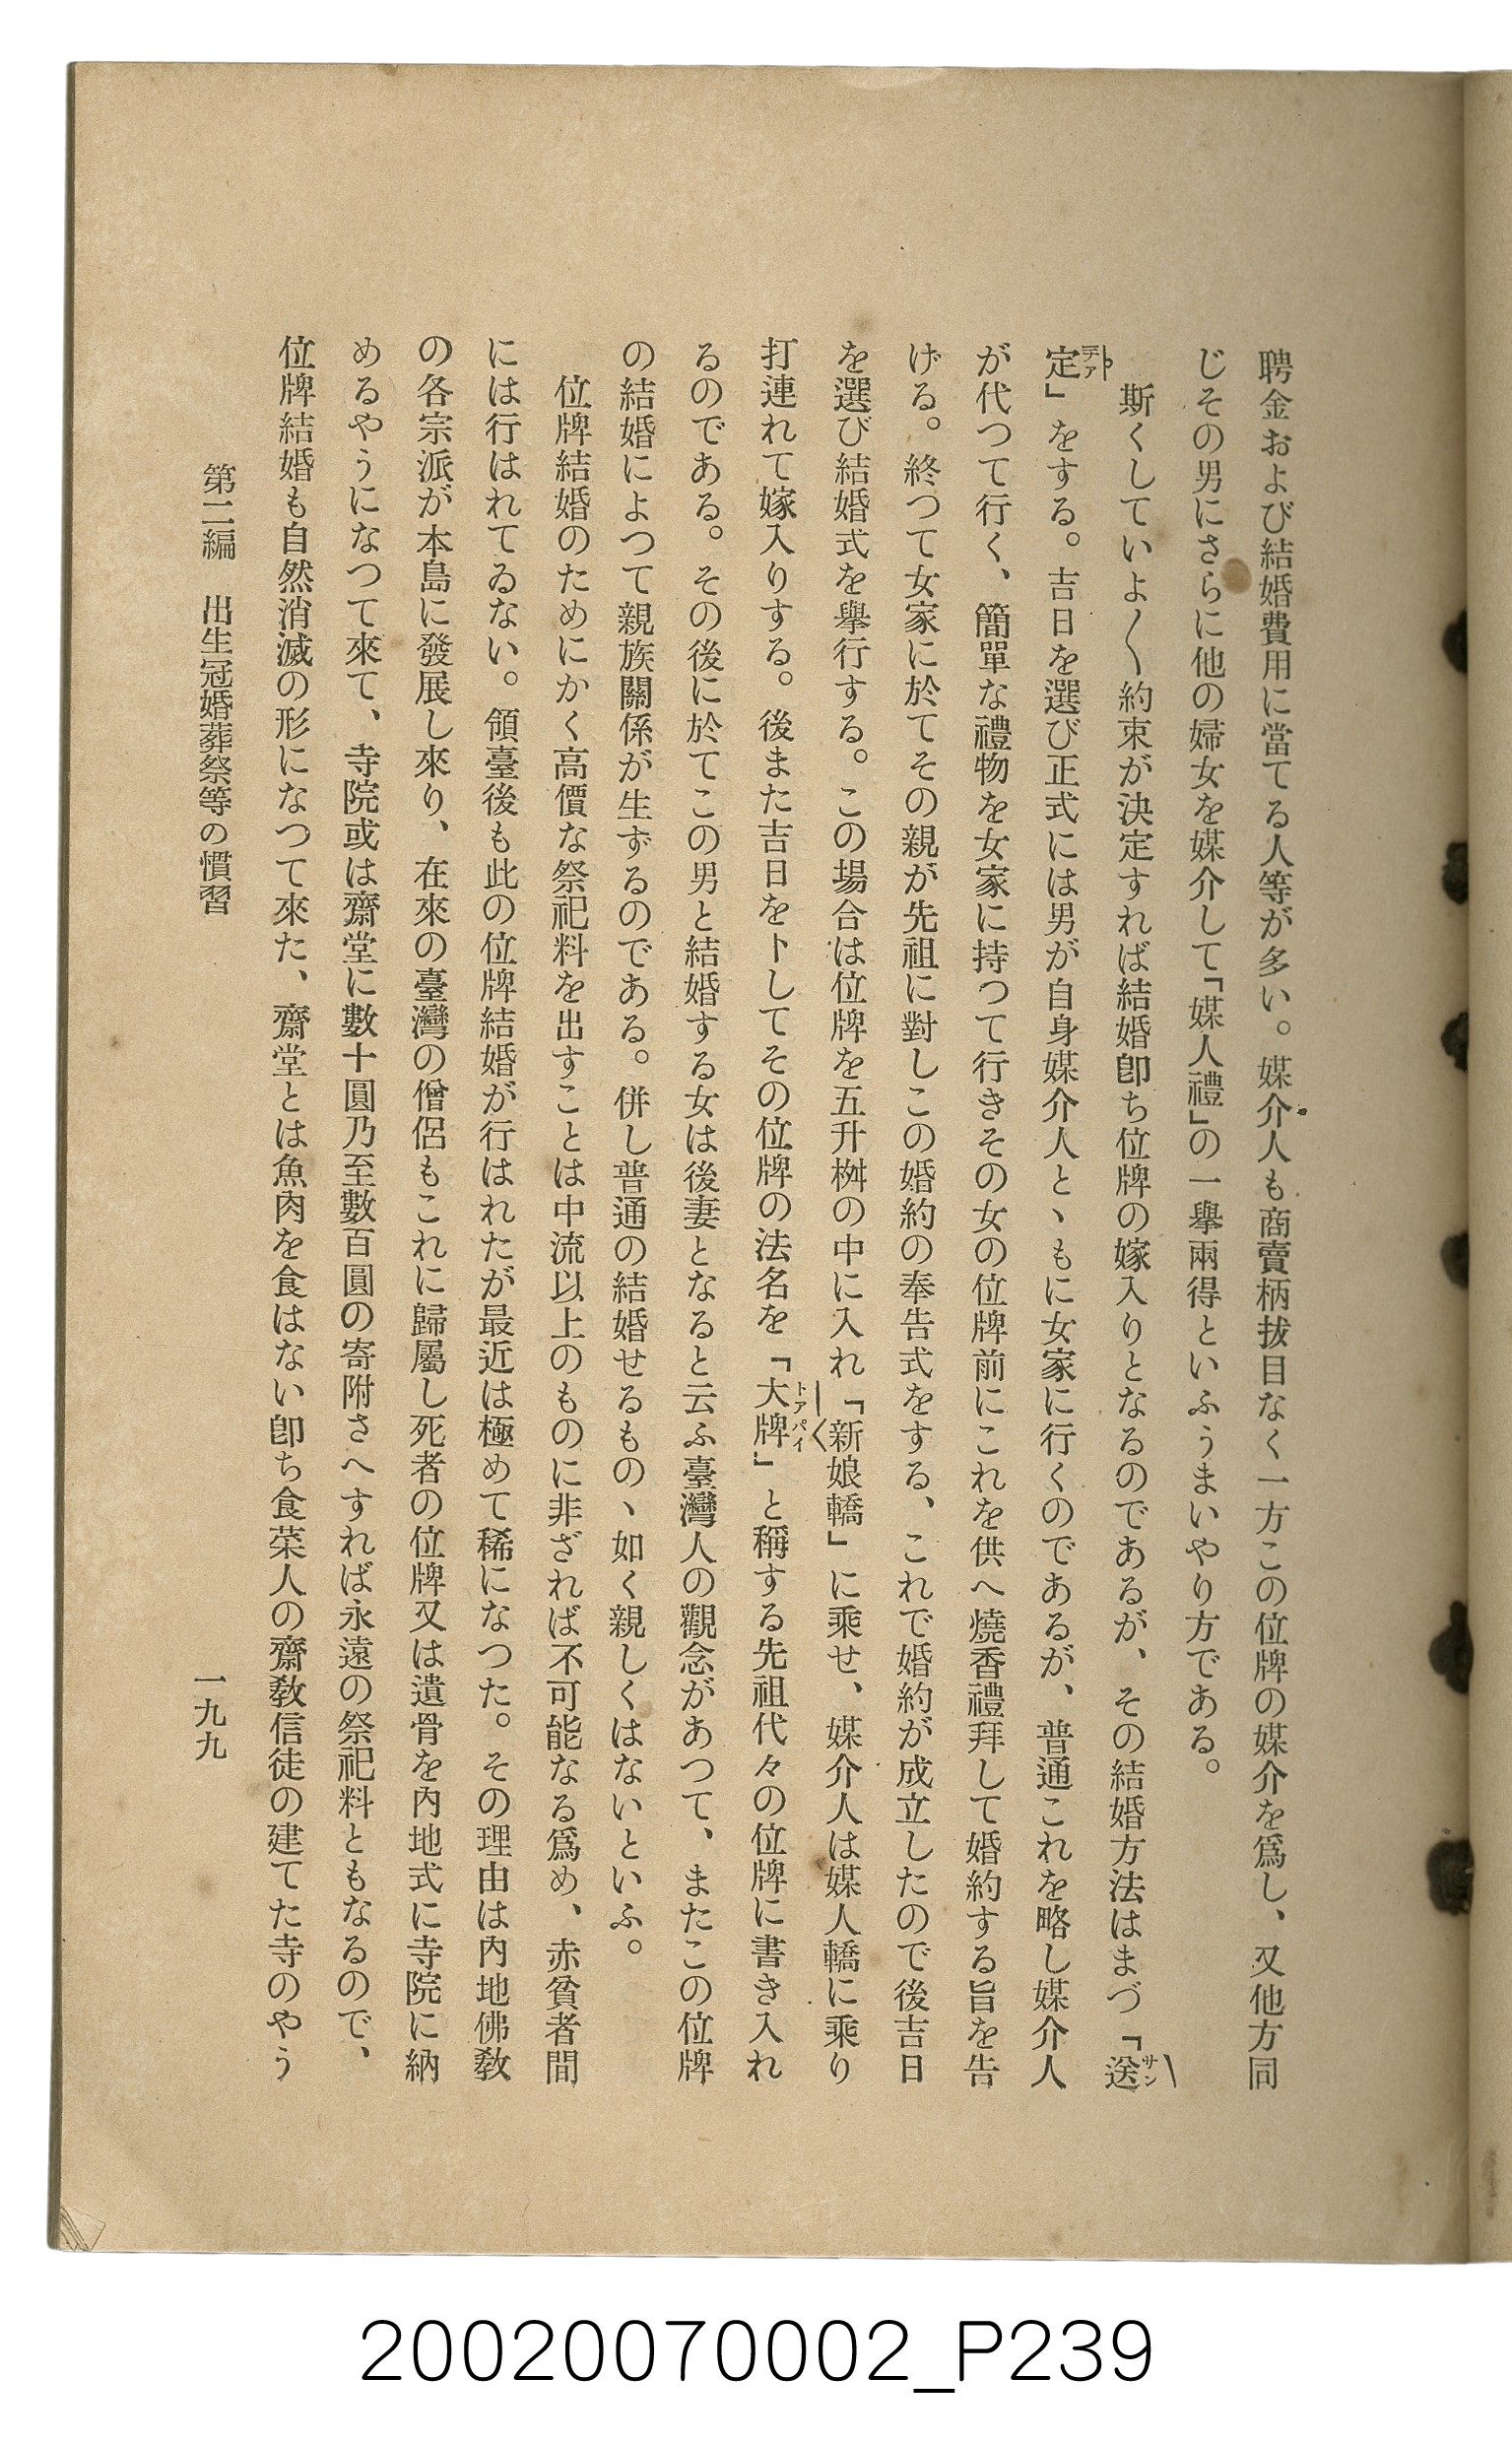 聘金および結婚費用に當てる人等が多い。媒介人も商賣柄拔目なく一方この位牌の媒介を爲し、又他方同
じその男にさらに他の婦女を媒介して「媒人禮」の一擧兩得といふうまいやり方である。
斯くしていよ〱約束が決定すれば結婚卽ち位牌の嫁入りとなるのであるが、その結婚方法はまづ「送
定」をする。吉日を選び正式には男が自身媒介人とヽもに女家に行くのであるが、普通これを略し媒介人
が代つて行く、簡單な禮物を女家に持つて行きその女の位牌前にこれを供へ燒香禮拜して婚約する旨を告
げる。終つて女家に於てその親が先祖に對しこの婚約の奉告式をする、これで婚約が成立したので後吉日
を選び結婚式を擧行する。この場合は位牌を五升桝の中に入れ「新娘轎」に乘せ、媒介人は媒人轎に乘り
打連れて嫁入りする。後また吉日を卜してその位牌の法名を「大牌」と稱する先祖代々の位牌に書き入れ
るのである。その後に於てこの男と結婚する女は後妻となると云ふ臺灣人の觀念があつて、またこの位牌
の結婚によつて親族關係が生ずるのである。併し普通の結婚せるものヽ如く親しくはないといふ。
位牌結婚のためにかく高價な祭祀料を出すことは中流以上のものに非ざれば不可能なる爲め、赤貧者間
には行はれてゐない。領臺後も此の位牌結婚が行はれたが最近は極めて稀になつた。その理由は內地佛敎
の各宗派が本島に發展し來り、在來の臺灣の僧侶もこれに歸屬し死者の位牌又は遺骨を內地式に寺院に納
めるやうになつて來て、寺院或は齋堂に數十圓乃至數百圓の寄附さへすれば永遠の祭祀料ともなるので、
位牌結婚も自然消滅の形になつて來た、齋堂とは魚肉を食はない卽ち食菜人の齋敎信徒の建てた寺のやう
第二編　出生冠婚葬祭等の慣習
一九九
20020070002_P239